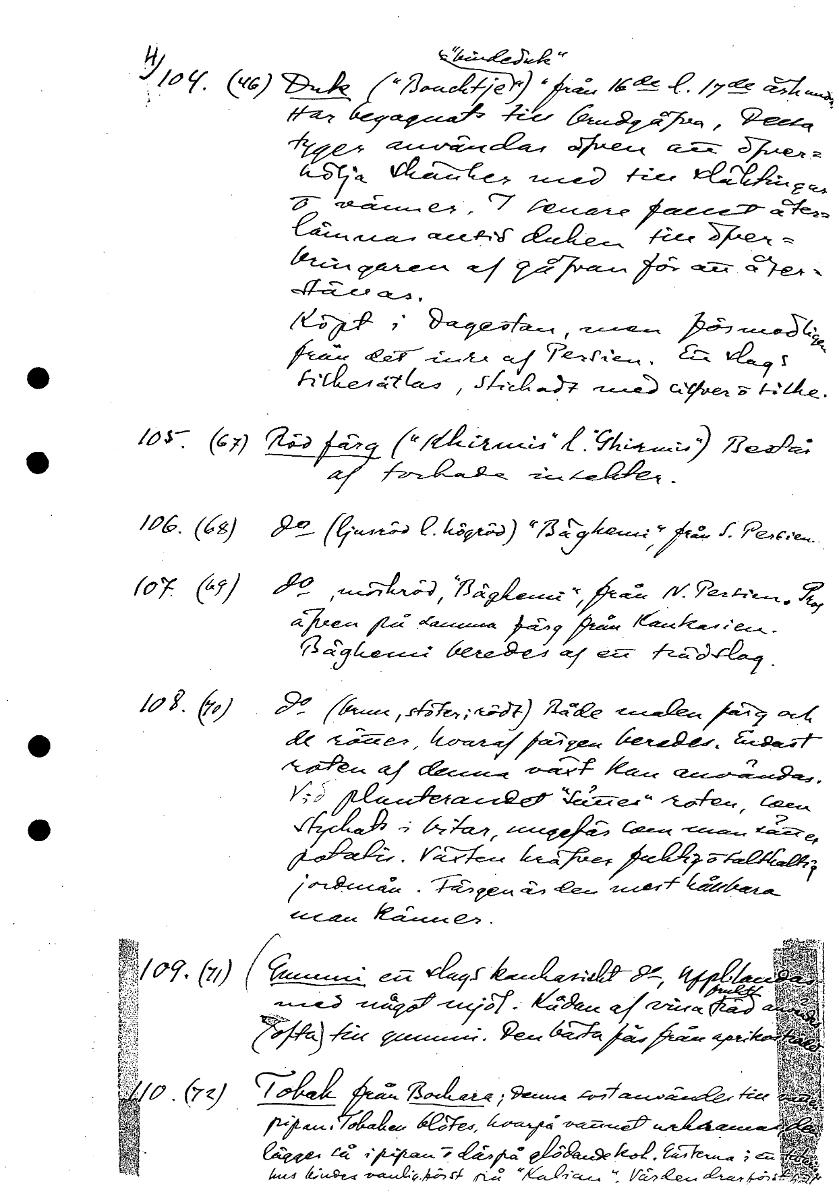 4/
"bindeduk"
104. (46) Duk ("Bouchtje") från 16de l. 17de århund.
Har begagnats till brudgåfva. Dessa
tyger användas äfven att öfver=
hölja skänker med till släktingar
o vänner. I senare fallet åter=
lämnas alltid duken till öfver=
bringaren af gåfvan för att åter-
ställas.
Köpt i Dagestan, men förmodligen
från det inre af Persien. En slags
silkesatlas, stickadt med silfver o silke.
105. (67) Röd färg ("Khirmis" l. "Ghirmis") Består
af torkade insekter.
106. (68) do (ljusröd l. högröd) "Bäghemi", från S. Persien.
107. (69) do, mörkröd, "Bäghemi", från N. Persien. Prof
äfven på samma färg från Kaukasien.
Bäghemi beredes af ett trädslag.
108. (70) do (brun, stöter i rödt) Både malen färg och
de rötter, hvaraf färgen beredes. Endast
roten af denna växt kan användas.
Vid planterandet "sättes" roten, som
styckats i bitar, ungefär som man sätter
potatis. Växten kräfver fuktig o salthaltig
jordmån. Färgen är den mest hållbara
man känner.
109. (71) (Gummi en slags kaukasiskt do, uppblandas
med något mjöl. Kådan af vissa frukt träd användes
(ofta) till gummi. Den bästa fås från aprikosträd
110. (72) Tobak från Bochara; denna sort användes till
pipan. Tobaken blötes, hvarpå vattnet urkramas,
lägges så i pipan o därpå glödande kol. Gästerna i en
hus bindes vanligtvist på "Kalian". Värden drar först